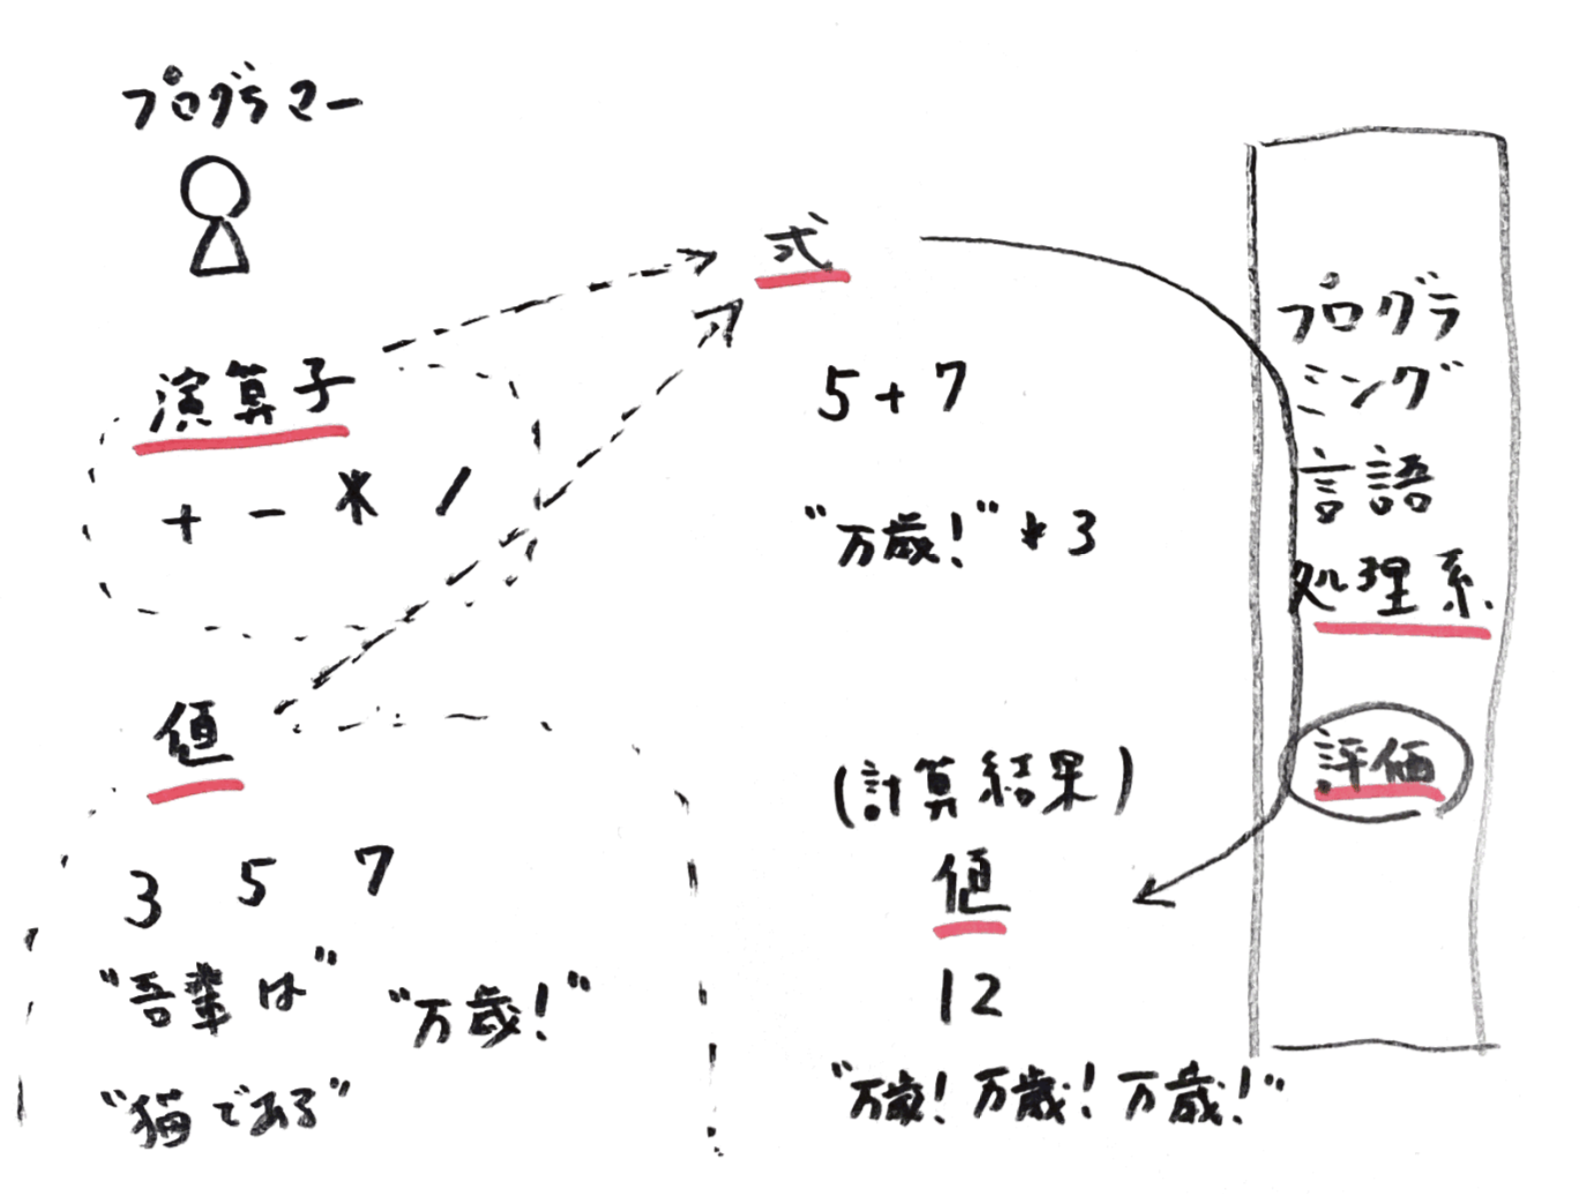 プログラマー
演算子
+ - * /
値
3 5 7
"吾輩は" "万歳!"
"猫である"
式
5+7
"万歳!"*3
(計算結果)
値
12
"万歳!万歳!万歳!"
プログラ
ミング
言語
処理系
評価